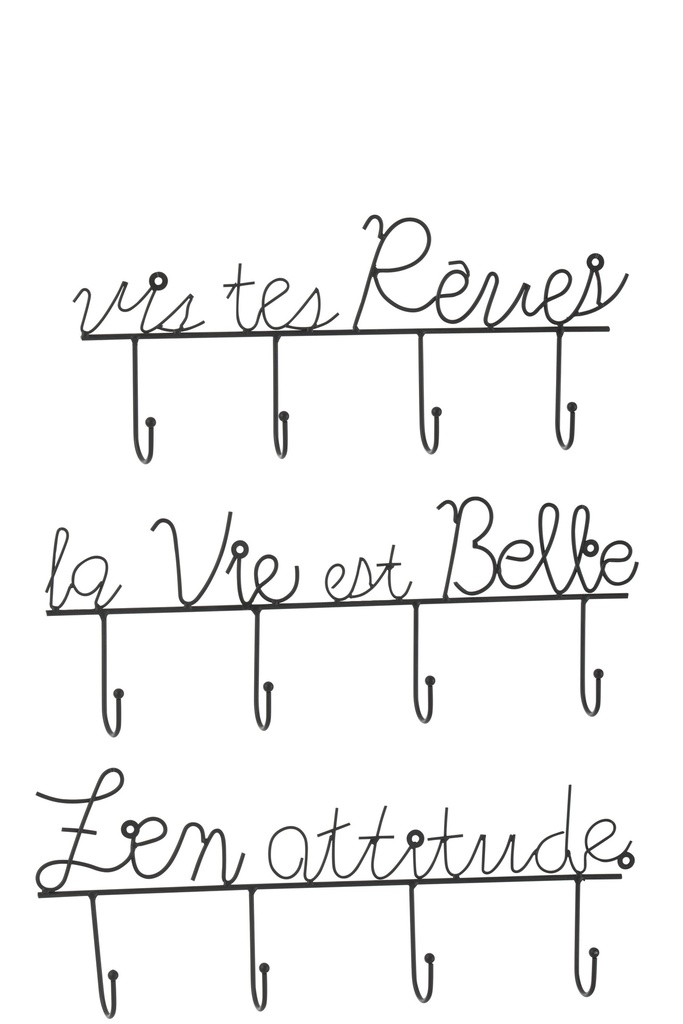 vis tes Rêves
la Vie est Belle
Zen attitude